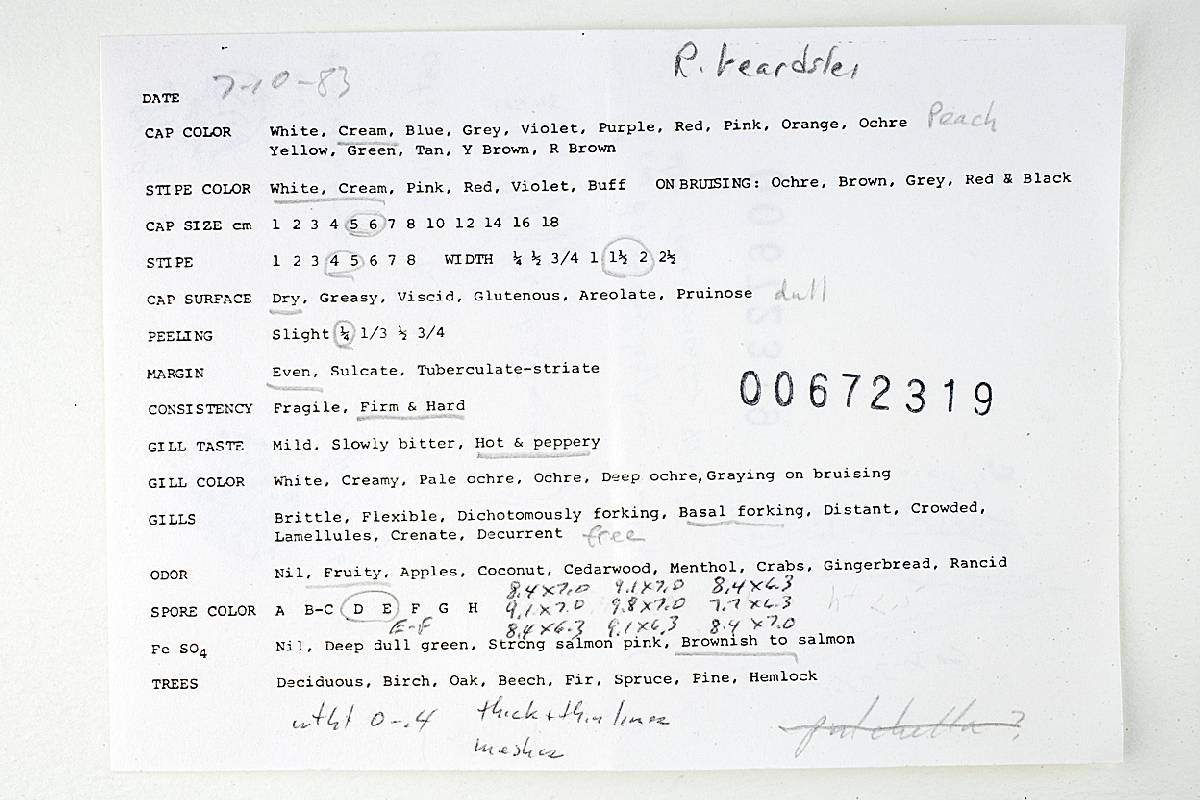 R. beardslei
DATE 7-10-83
CAP COLOR White, Cream, Blue, Grey, Violet, Purple, Red, Pink, Orange, Ochre Peach
Yellow, Green, Tan, Y Brown, R Brown
STIPE COLOR White, Cream, Pink, Red, Violet, Buff ON BRUISING: Ochre, Brown, Grey, Red & Black
CAP SIZE cm 1 2 3 4 5 6 7 8 10 12 14 16 18
STIPE 1 2 3 4 5 6 7 8 WIDTH ¼ ½ 3/4 1 1½ 2 2½
CAP SURFACE Dry, Greasy, Viscid, Glutenous, Areolate, Pruinose dull
PEELING Slight ¼ 1/3 ½ 3/4
MARGIN Even, Sulcate, Tuberculate-striate
00672319
CONSISTENCY Fragile, Firm & Hard
GILL TASTE Mild, Slowly bitter, Hot & peppery
GILL COLOR White, Creamy, Pale ochre, Ochre, Deep ochre, Graying on bruising
GILLS Brittle, Flexible, Dichotomously forking, Basal forking, Distant, Crowded,
Lamellules, Crenate, Decurrent free
ODOR Nil, Fruity, Apples, Coconut, Cedarwood, Menthol, Crabs, Gingerbread, Rancid
8.4x7.0 9.1x7.0 8.4x6.3
SPORE COLOR A B-C D E F G H 9.1x7.0 9.8x7.0 7.7x6.3
E-F 8.4x6.3 9.1x6.3 8.4x7.0
Fe SO4 Nil, Deep dull green, Strong salmon pink, Brownish to salmon
TREES Deciduous, Birch, Oak, Beech, Fir, Spruce, Pine, Hemlock
0-.4 thick + thin lines
meshes